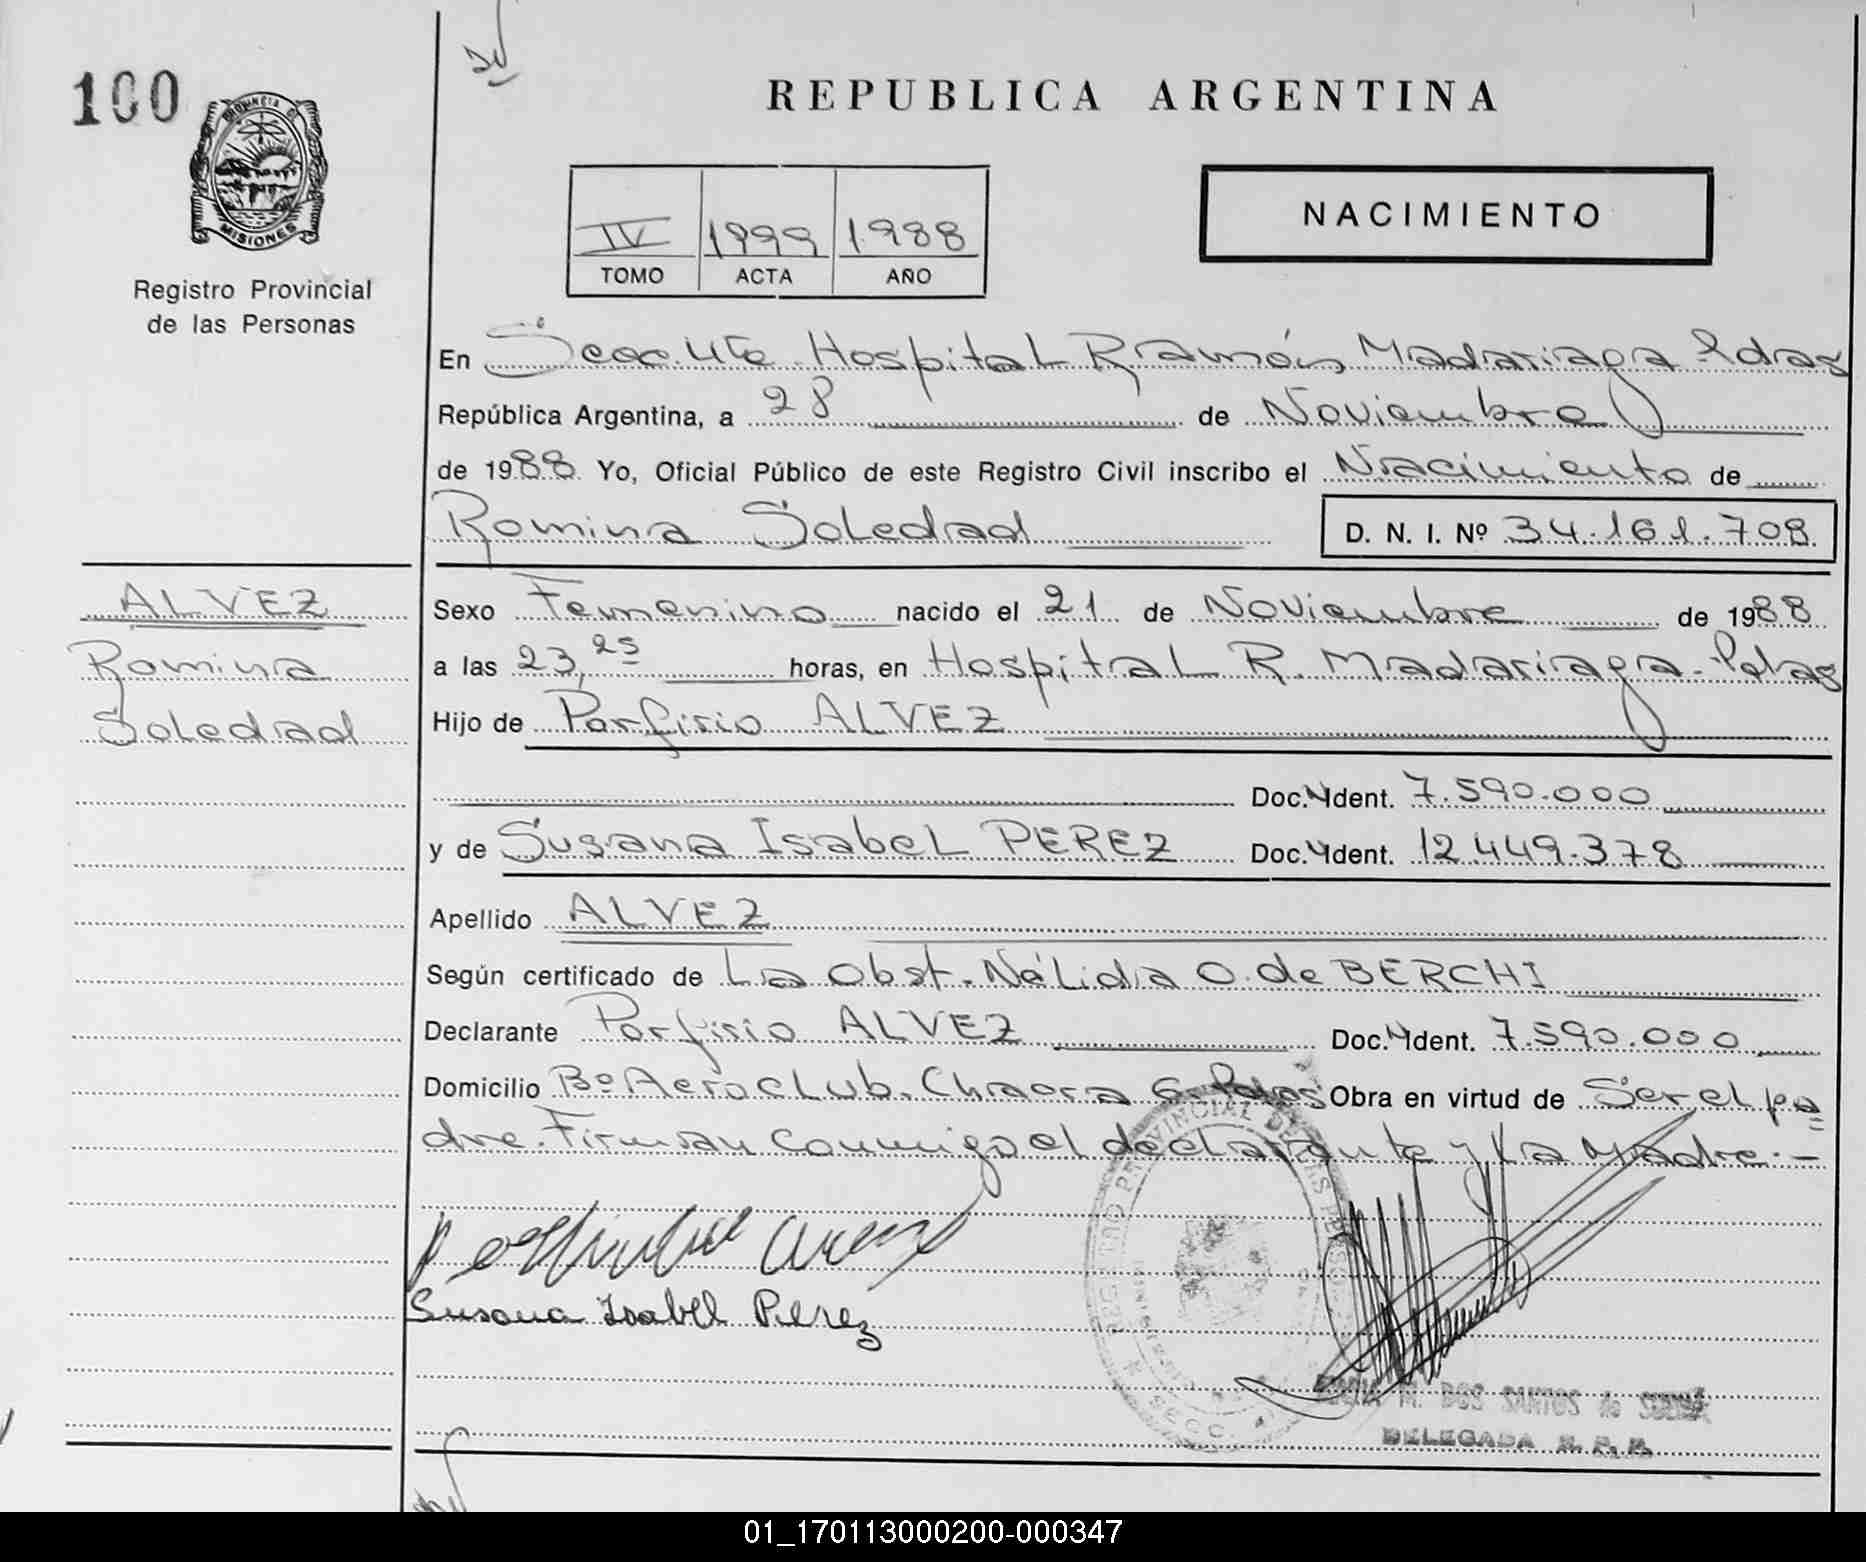 100
PROVINCIA DE
MISIONES
Registro Provincial
de las Personas
REPUBLICA ARGENTINA
NACIMIENTO
IV 1999 1988
TOMO ACTA AÑO
En Secc. 4ta. Hospital Ramón Madariaga Pdas
República Argentina, a 28 de Noviembre
de 1988. Yo, Oficial Público de este Registro Civil inscribo el Nacimiento de
Romina Soledad D. N. I. Nº 34.161.708
ALVEZ
Romina
Soledad
Sexo Femenino nacido el 21 de Noviembre de 1988
a las 23,25 horas, en Hospital R. Madariaga - Pdas
Hijo de Porfirio ALVEZ
Doc. Ident. 7.590.000
y de Susana Isabel PEREZ Doc. Ident. 12.449.378
Apellido ALVEZ
Según certificado de La Obst. Nélida O. de BERCHI
Declarante Porfirio ALVEZ Doc. Ident. 7.590.000
Domicilio Bº Aeroclub. Chacra 6. Pdas Obra en virtud de Ser el pa
dre. Firman conmigo el declarante y la Madre.-
Susana Isabel Perez
M. DOS SANTOS de
DELEGADA R. P. P.
01_170113000200-000347